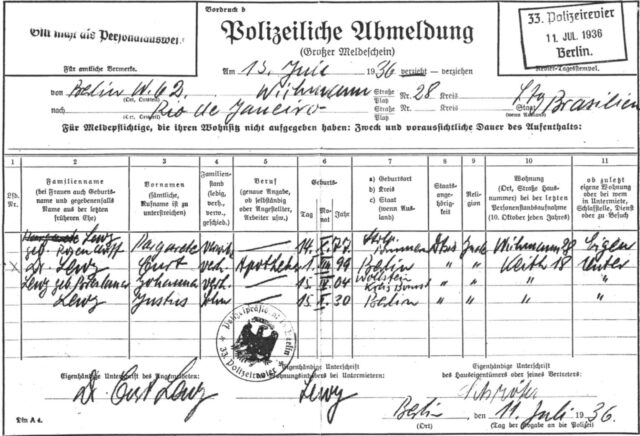 Vordruck b
Gilt nicht als Personalausweis
Polizeiliche Abmeldung
(Großer Meldeschein)
33. Polizeirevier
11. JUL. 1936
Berlin.
Für amtliche Vermerke.
Am 15. Juli 1936 verzieht — verziehen
Revier-Tagesstempel.
von Berlin W. 62 Straße Platz Nr. 28 Kreis
(Ort, Ortsteil)
nach Rio de Janeiro Straße Platz Nr. Kreis Staat Brasilien
(Ort, Ortsteil) (wenn Ausland)
Für Meldepflichtige, die ihren Wohnsitz nicht aufgegeben haben: Zweck und voraussichtliche Dauer des Aufenthalts:
1 2 3 4 5 6 7 8 9 10 11
Lfd. Nr.
Familienname
(bei Frauen auch Geburtsname und gegebenenfalls Name aus der letzten früheren Ehe)
Vornamen
(sämtliche, Rufname ist zu unterstreichen)
Familienstand
(ledig, verh., verw., gesch.)
Beruf
(genaue Angabe, ob selbständig oder Angestellter, Arbeiter usw.)
Geburts-
Tag Monat Jahr
a) Geburtsort
b) Kreis
c) Staat
(wenn Ausland)
Staatsangehörigkeit
Religion
Wohnung
(Ort, Straße Hausnummer) bei der letzten Personenstandsaufnahme
(10. Oktober jeden Jahres)
ob zuletzt eigene Wohnung oder bei wem in Untermiete, Schlafstelle, Dienst oder zu Besuch
Lewy Margarete 14. 77 28
Dr. Lewy Curt verh. Apotheker 1. 99 Berlin " " Keith 18 Unter
Lewy geb. Johanna verh. 15. 04 Wollstein " " " "
Lewy Justus 15. 30 Berlin " " " "
Polizeipräsident Berlin
33. Polizeirevier
Eigenhändige Unterschrift des Angemeldeten:
Dr. Curt Lewy
Eigenhändige Unterschrift des Wohnungsinhabers bei Untermietern:
Lewy
Eigenhändige Unterschrift
des Hauseigentümers oder seines Vertreters:
Berlin, den 11. Juli 1936.
(Ort) (Tag der Abgabe an die Polizei)
Din A 4.